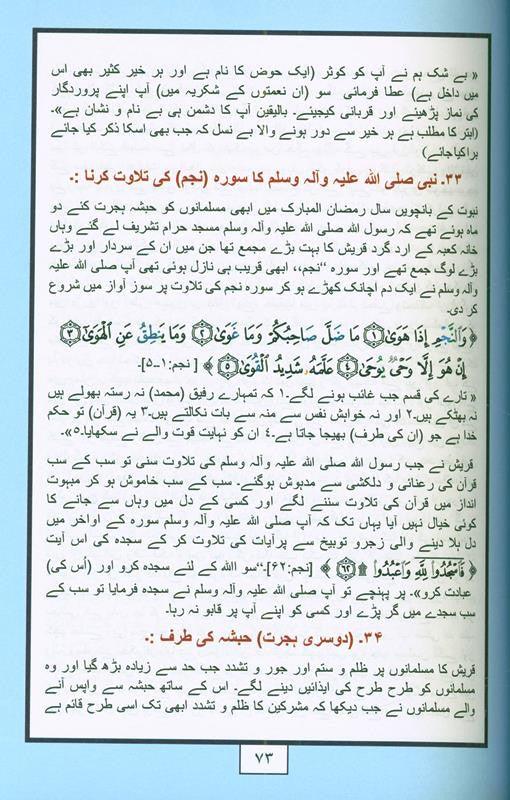 « بے شک ہم نے آپ کو کوثر (ایک حوض کا نام ہے اور ہر خیر کثیر بھی اس
میں داخل ہے) عطا فرمائی سو (ان نعمتوں کے شکریہ میں) آپ اپنے پروردگار
کی نماز پڑھیئے اور قربانی کیجیئے۔ بالیقین آپ کا دشمن ہی بے نام و نشان ہے»۔
(ابتر کا مطلب ہے ہر خیر سے دور ہونے والا بے نسل کہ جب بھی اسکا ذکر کیا جائے
براکہاجائے)
۳۳۔ نبی صلی اللہ علیہ وآلہ وسلم کا سورہ (نجم) کی تلاوت کرنا :۔
نبوت کے پانچویں سال رمضان المبارک میں ابھی مسلمانوں کو حبشہ ہجرت کئے دو
ماہ ہوئے تھے کہ رسول اللہ صلی اللہ علیہ وآلہ وسلم مسجد حرام تشریف لے گئے وہاں
خانہ کعبہ کے ارد گرد قریش کا بہت بڑے مجمع تھا جن میں ان کے سردار اور بڑے
بڑے لوگ جمع تھے اور سورہ “نجم،، ابھی قریب ہی نازل ہوئی تھی آپ صلی اللہ علیہ
وآلہ وسلم نے ایک دم اچانک کھڑے ہو کر سورہ نجم کی تلاوت پر سوز آواز میں شروع
کر دی۔
﴿ وَالنَّجْمِ إِذَا هَوَىٰ ۝١ مَا ضَلَّ صَاحِبُكُمْ وَمَا غَوَىٰ ۝٢ وَمَا يَنطِقُ عَنِ الْهَوَىٰ ۝٣
إِنْ هُوَ إِلَّا وَحْيٌ يُوحَىٰ ۝٤ عَلَّمَهُ شَدِيدُ الْقُوَىٰ ۝٥ ﴾ [ نجم:۱۔۵]۔
« تارے کی قسم جب غائب ہونے لگے۔۱ کہ تمہارے رفیق (محمد) نہ رستہ بھولے ہیں
نہ بھٹکے ہیں۔۲ اور نہ خواہش نفس سے منہ سے بات نکالتے ہیں۔۳ یہ (قرآن) تو حکم
خدا ہے جو (ان کی طرف) بھیجا جاتا ہے۔٤ ان کو نہایت قوت والے نے سکھایا۔۵»۔
قریش نے جب رسول اللہ صلی اللہ علیہ وآلہ وسلم کی تلاوت سنی تو سب کے سب
قرآن کی رعنائی و دلکشی سے مدہوش ہوگئے۔ سب کے سب خاموش ہو کر مبہوت
انداز میں قرآن کی تلاوت سننے لگے اور کسی کے دل میں وہاں سے جانے کا
کوئی خیال نہیں آیا یہاں تک کہ آپ صلی اللہ علیہ وآلہ وسلم سورہ کے اواخر میں
دل ہلا دینے والی زجرو توبیخ سے پرآیات کی تلاوت کر کے سجدہ کی اس آیت
﴿ فَاسْجُدُوا لِلَّهِ وَاعْبُدُوا ۩ ۝٦٢ ﴾ [نجم:۶۲]۔“سو اللہ کے لئے سجدہ کرو اور (اُس کی)
عبادت کرو»۔ پر پہنچے تو آپ صلی اللہ علیہ وآلہ وسلم نے سجدہ فرمایا تو سب کے
سب سجدے میں گر پڑے اور کسی کو اپنے آپ پر قابو نہ رہا۔
۳۴۔ (دوسری ہجرت) حبشہ کی طرف :۔
قریش کا مسلمانوں پر ظلم و ستم اور جور و تشدد جب حد سے زیادہ بڑھ گیا اور وہ
مسلمانوں کو طرح طرح کی ایذائیں دینے لگے۔ اس کے ساتھ حبشہ سے واپس آنے
والے مسلمانوں نے جب دیکھا کہ مشرکین کا ظلم و تشدد ابھی تک اسی طرح قائم ہے
۷۳